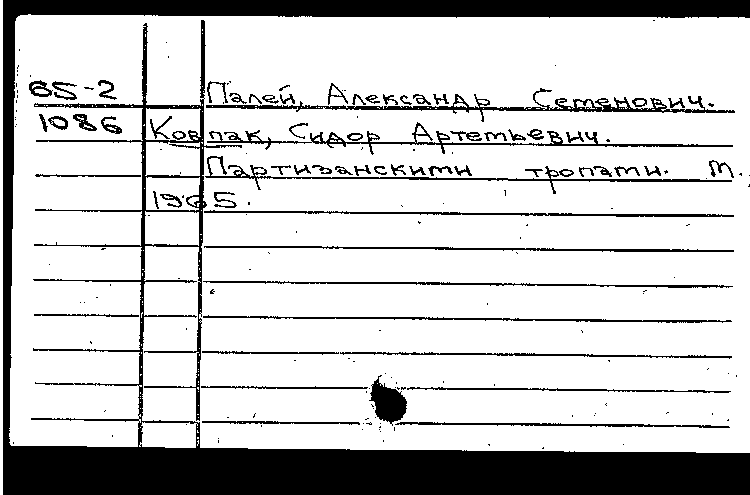 65-2 Палей, Александр Семенович.
1086 Ковпак, Сидор Артемьевич.
Партизанскими тропами. М.,
1965.